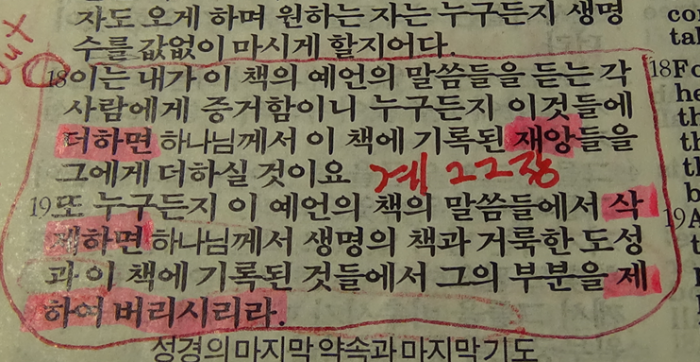 자도 오게 하며 원하는 자는 누구든지 생명
수를 값없이 마시게 할지어다.
18 이는 내가 이 책의 예언의 말씀들을 듣는 각
사람에게 증거함이니 누구든지 이것들에
더하면 하나님께서 이 책에 기록된 재앙들을
그에게 더하실 것이요
계 22장
19 또 누구든지 이 예언의 책의 말씀들에서 삭
제하면 하나님께서 생명의 책과 거룩한 도성
과 이 책에 기록된 것들에서 그의 부분을 제
하여 버리시리라.
성경의 마지막 약속과 마지막 기도
18 Fo
he
th
th
b
19 A